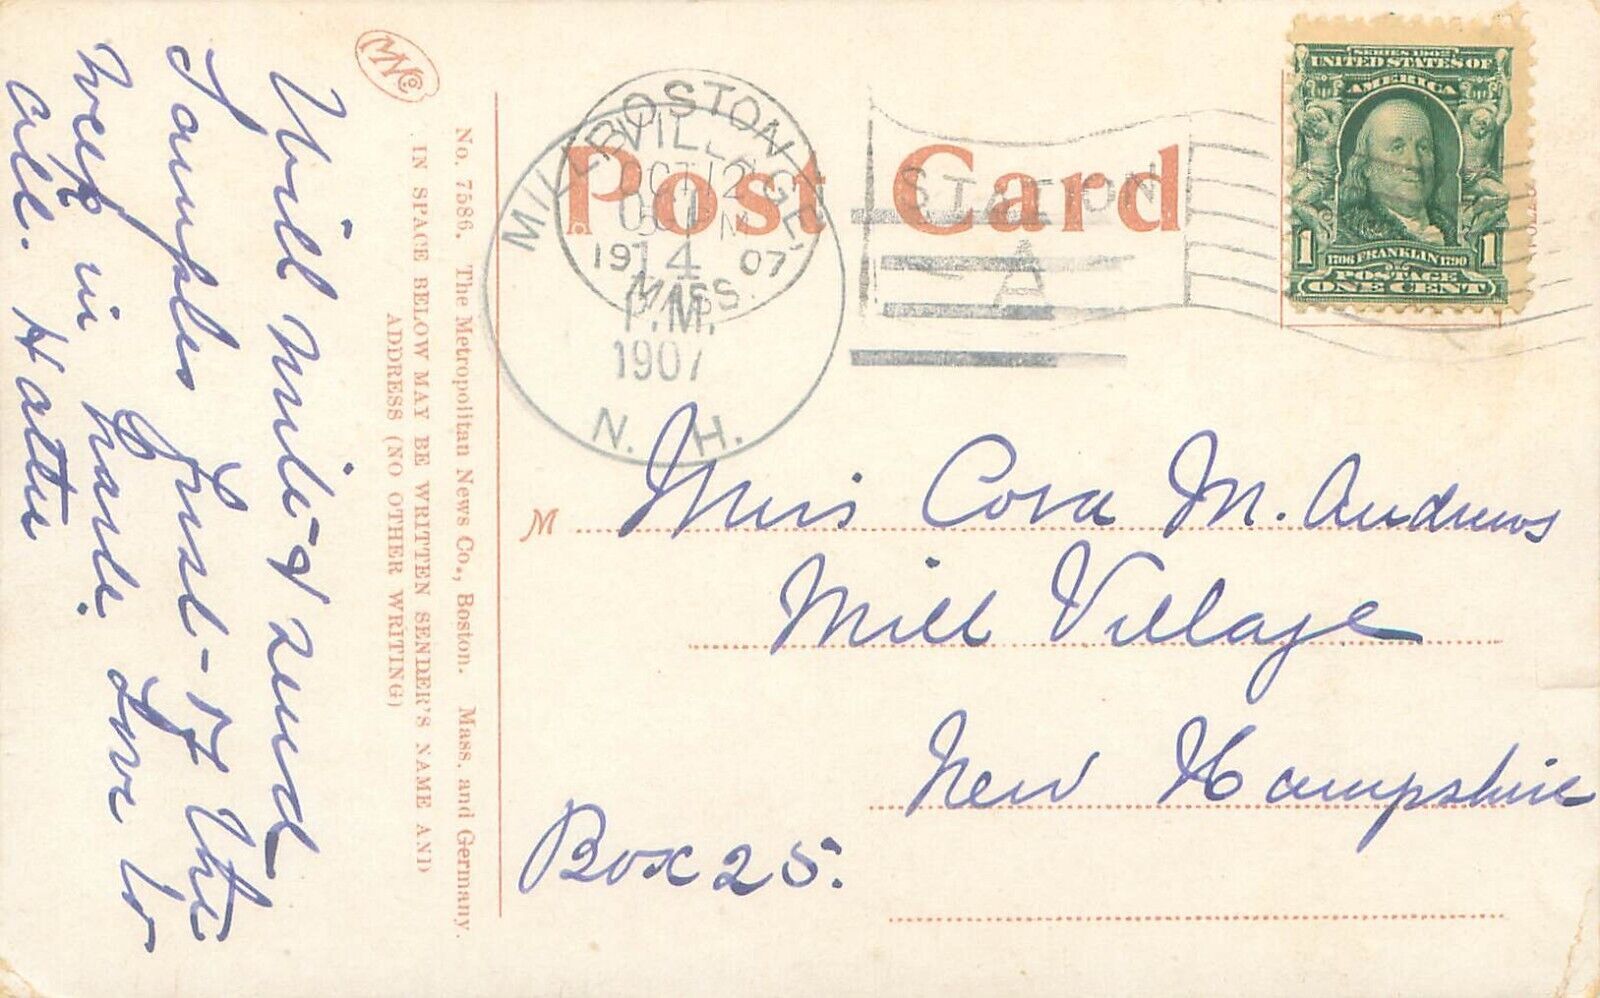 Post Card
SERIES 1902
UNITED STATES OF
AMERICA
1 1706 FRANKLIN 1790 1
POSTAGE
ONE CENT
BOSTON
OCT 12
1907
MASS.
STATION
A
MILL VILLAGE,
14
P.M.
1907
N. H.
M Miss Cora M. Andrews
Mill Village
New Hampshire
Box 25.
No. 7586. The Metropolitan News Co., Boston. Mass. and Germany.
IN SPACE BELOW MAY BE WRITTEN SENDER'S NAME AND
ADDRESS (NO OTHER WRITING)
Will write & send
Samples first of the
week in haste. Love to
all. Hattie